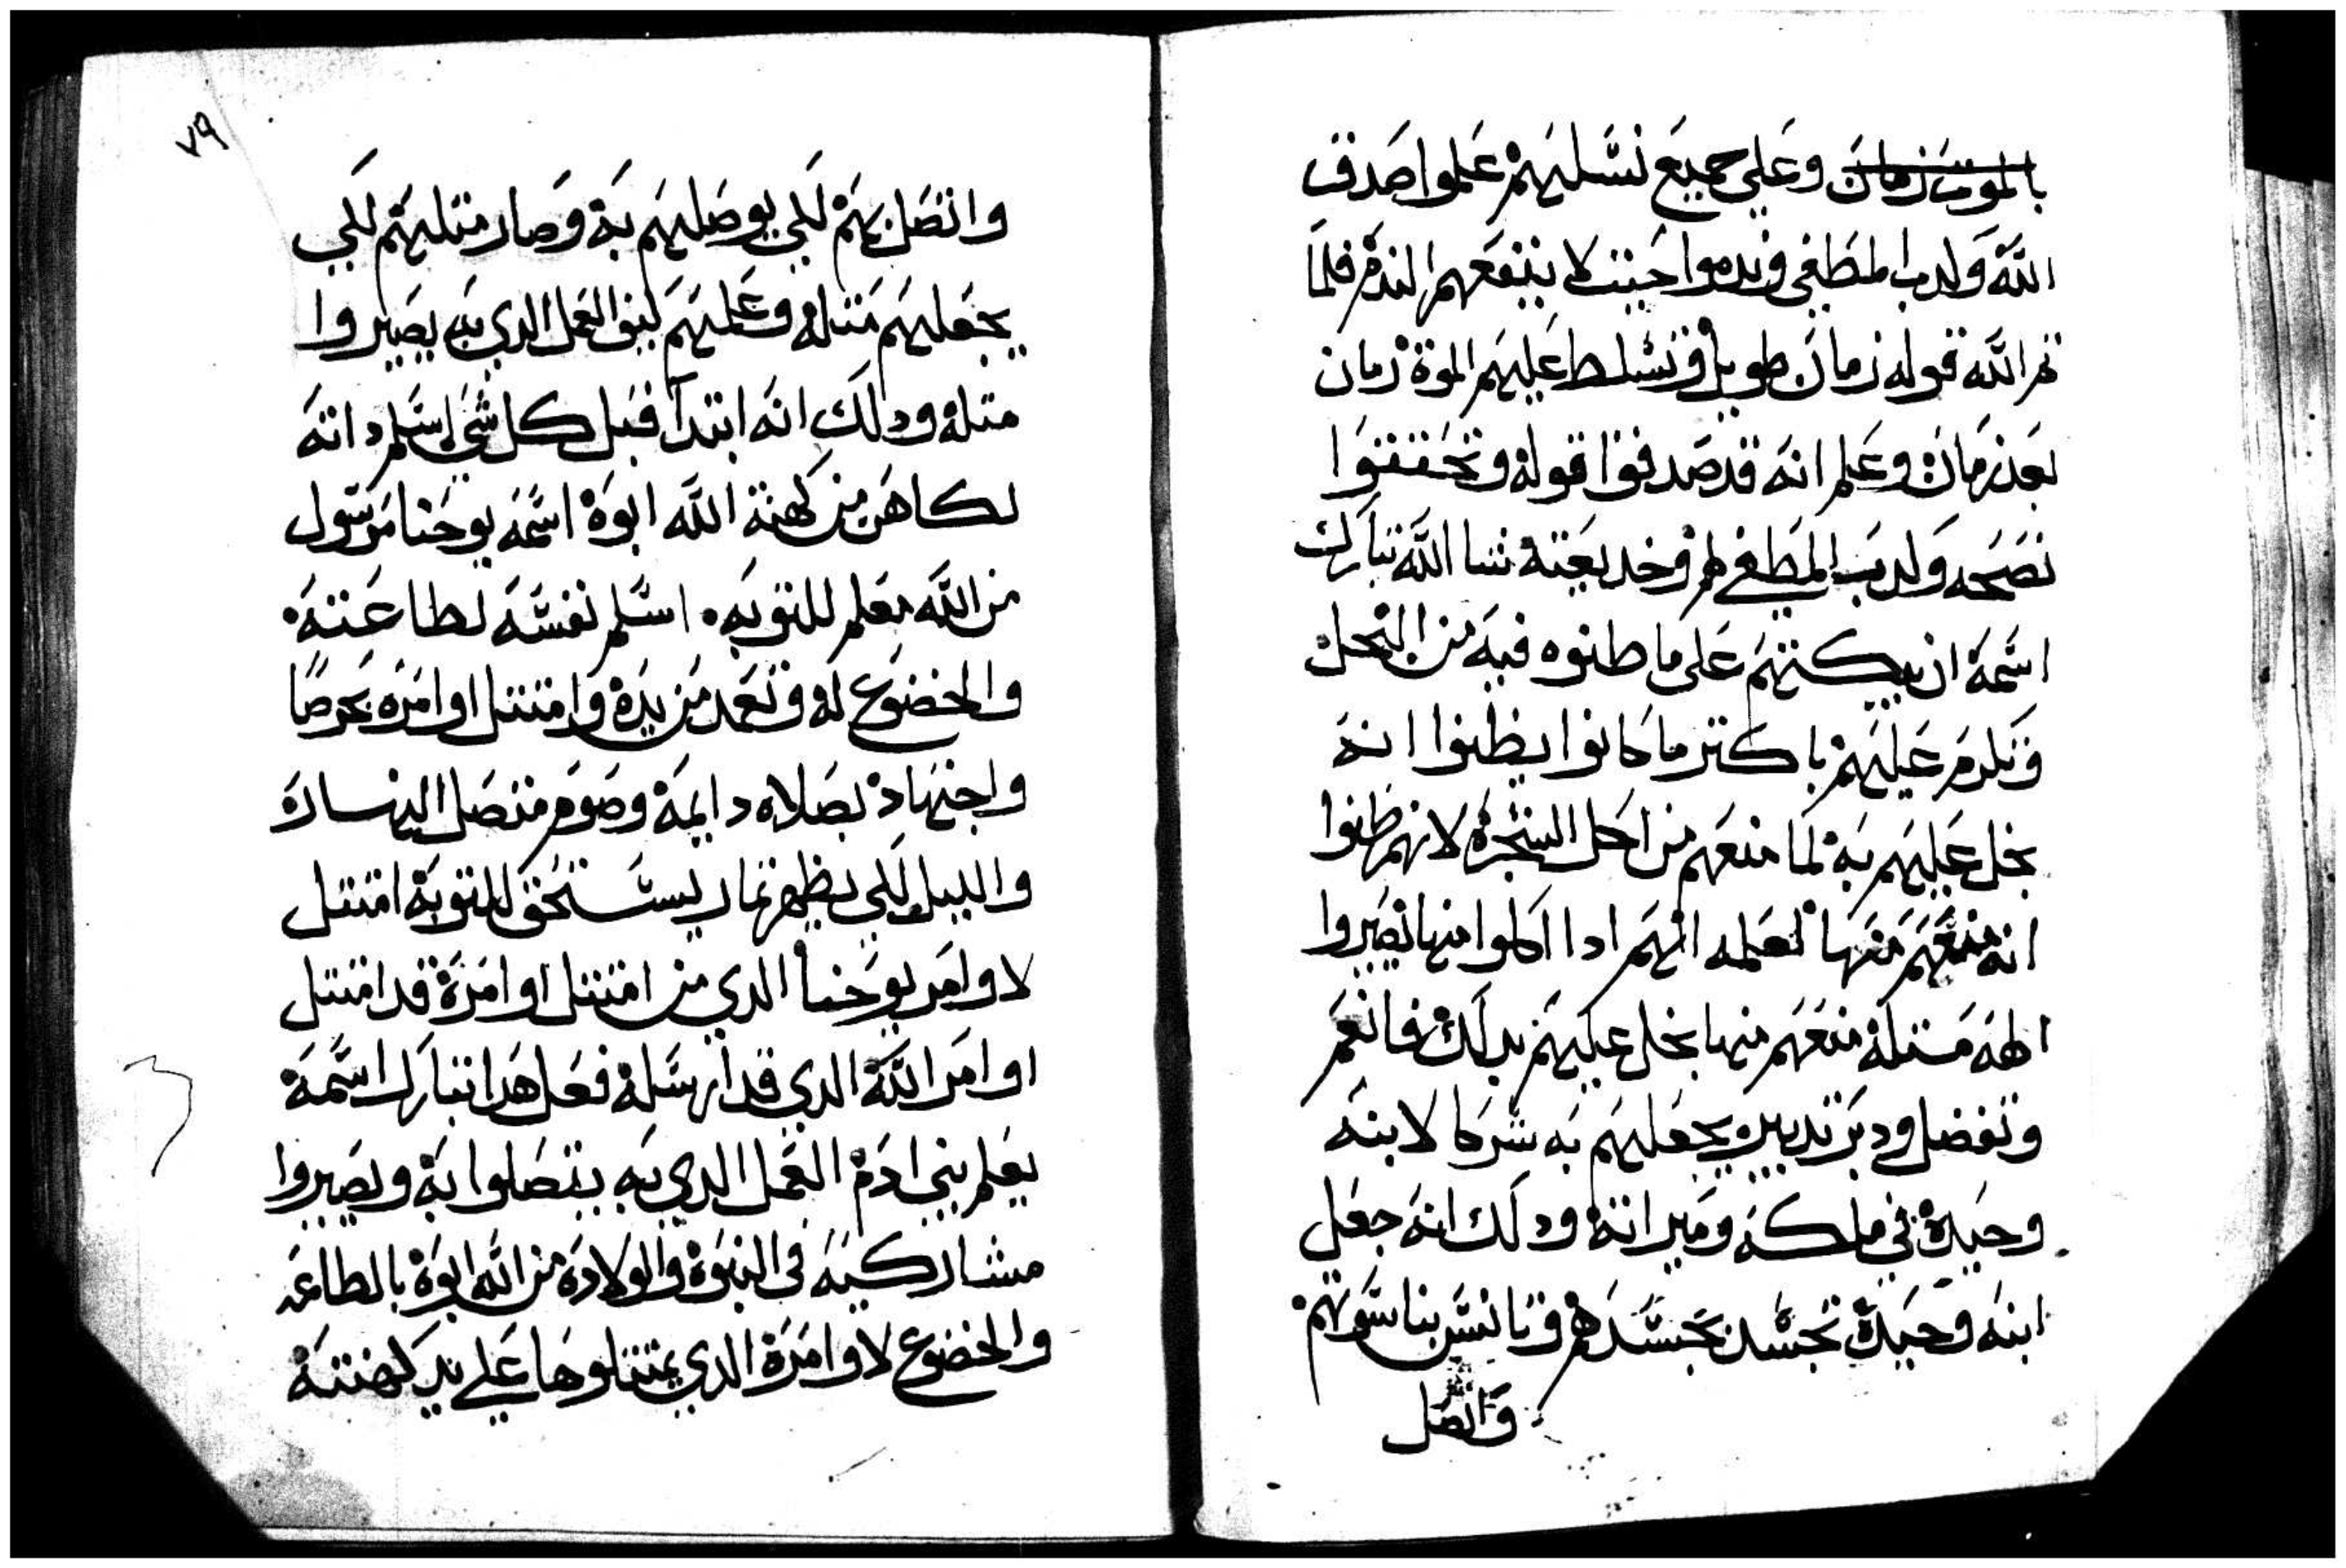 بالموت زمان وعلى جميع نسليهم علموا صدق
الله ولدب المطغي وندموا حيتت لا ينفعهم الندم فلما
تم الله قوله زمان طويل وتسلط عليهم الموة زمان
بعد زمان وعلم انه قد صدقوا قوله وتحققوا
نصحه ولدب المطغي لهم وخديعته شا الله تبارك
اسمه ان يبكتهم على ما ظنوه فيه من البخل
وتكرم عليهم باكتر ما كانوا يظنوا انه
بخل عليهم به لما منعهم من اكل الشجره لانهم ظنوا
انه منعهم منها لعلمه انهم ادا اكلوا منها تصيروا
الهه متله منعهم منها بخل عليهم بدلك فانعم
وتفضل ودبر تدبير يجعلهم به شركا لابنه
وحيده في ملكه وميراته ودلك انه جعل
ابنه وحيده تجسد بجسدهم وتانس بناسوتهم
واتصل
٧٩
واتصل بهم لكي يوصليهم به وصار متليهم لكي
يجعليهم متله وعلميهم كيف العمل الدي به يصيروا
متله ودلك انه ابتدا قبل كل شي اسلم داته
لكاهن من كهنة الله ابوه اسمه يوحنا مرسول
من الله معلم للتوبه. اسلم نفسه لطاعته
والخضوع له وتعمد من يده وامتتل اوامره بحرصا
واجتهاد بصلاه دايمه وصوم متصل النهار
والليل لكي يظهر تمار يستحق للتوبه امتتل
لاوامر يوحنا الدي من امتتل اوامره قد امتتل
اوامر الله الدي قد ارسله فعل هدا تبارك اسمه
يعلم بني ادم العمل الدي به يتصلوا به ويصيروا
مشاركينه في البنوه والولاده من الله ابوه بالطاعه
والخضوع لاوامره الدي يمتتلوها على يد كهنته